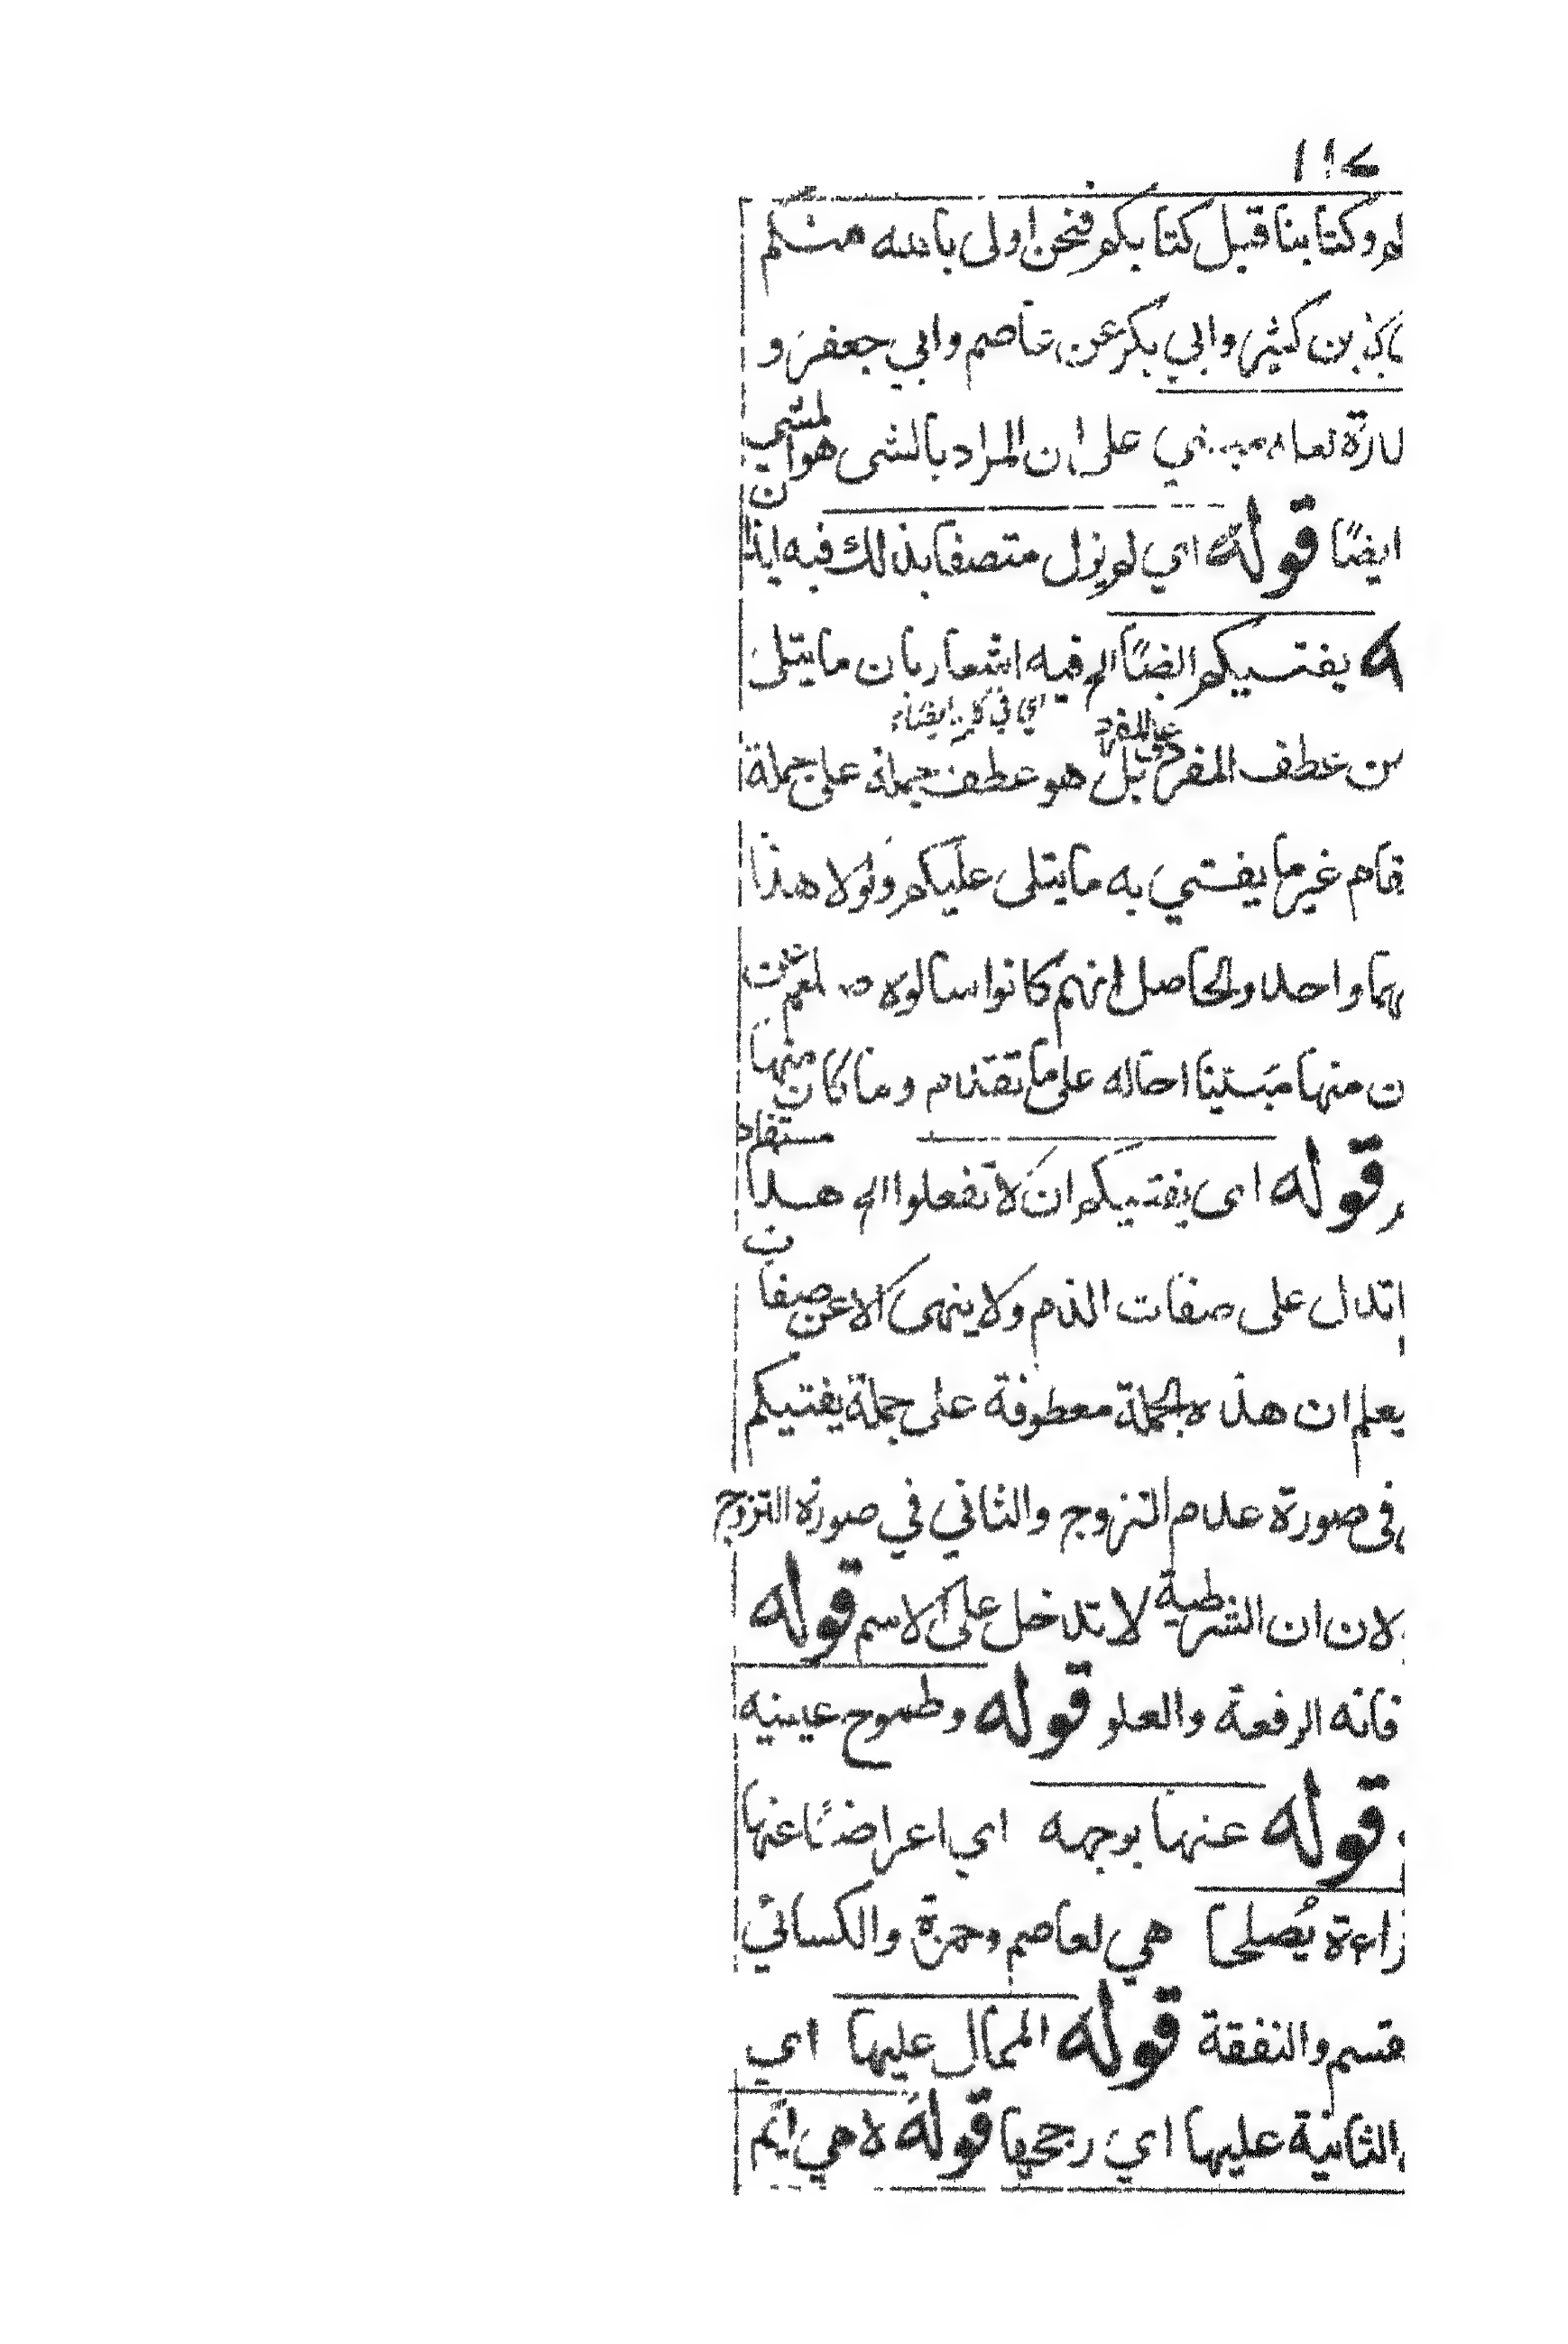 وكتابنا قبل كتابكم فنحن اولى بالله منكم
بن كثير وابي بكر عن عاصم وابي جعفر و
على ان المراد بالشى هو المشي
ايضا قوله اي لم يزل متصفا بذلك فيه ايذا
ن
ه يفتيكم ايضا الخ فيه اشعار بان ما يتلى
من عطف المفرد على المفرد بل هو عطف جملة على جملة
غير ما يفتي به ما يتلى عليكم ولولا هذا
واحدا والحاصل انهم كانوا سالوه عن
منها مبينا احاله على ما تقدم وما كان منها
قوله اى يفتيكم ان لا تفعلوا الخ هذا مستفاد
تدل على صفات الذم ولا ينهى الا عن صفات
يعلم ان هذه الجملة معطوفة على جملة يفتيكم
فى صورة عدم التزوج والثاني في صورة التزوج
لان ان الشرطية لا تدخل على الاسم قوله
فانه الرفعة والعلو قوله وطموح عينيه
قوله عنها بوجهه اي اعراضا عنها
يُصلحا هي لعاصم وحمزة والكسائي
والنفقة قوله الممال عليها اي
الثانية عليها اي رجحها قوله لا هي ايم